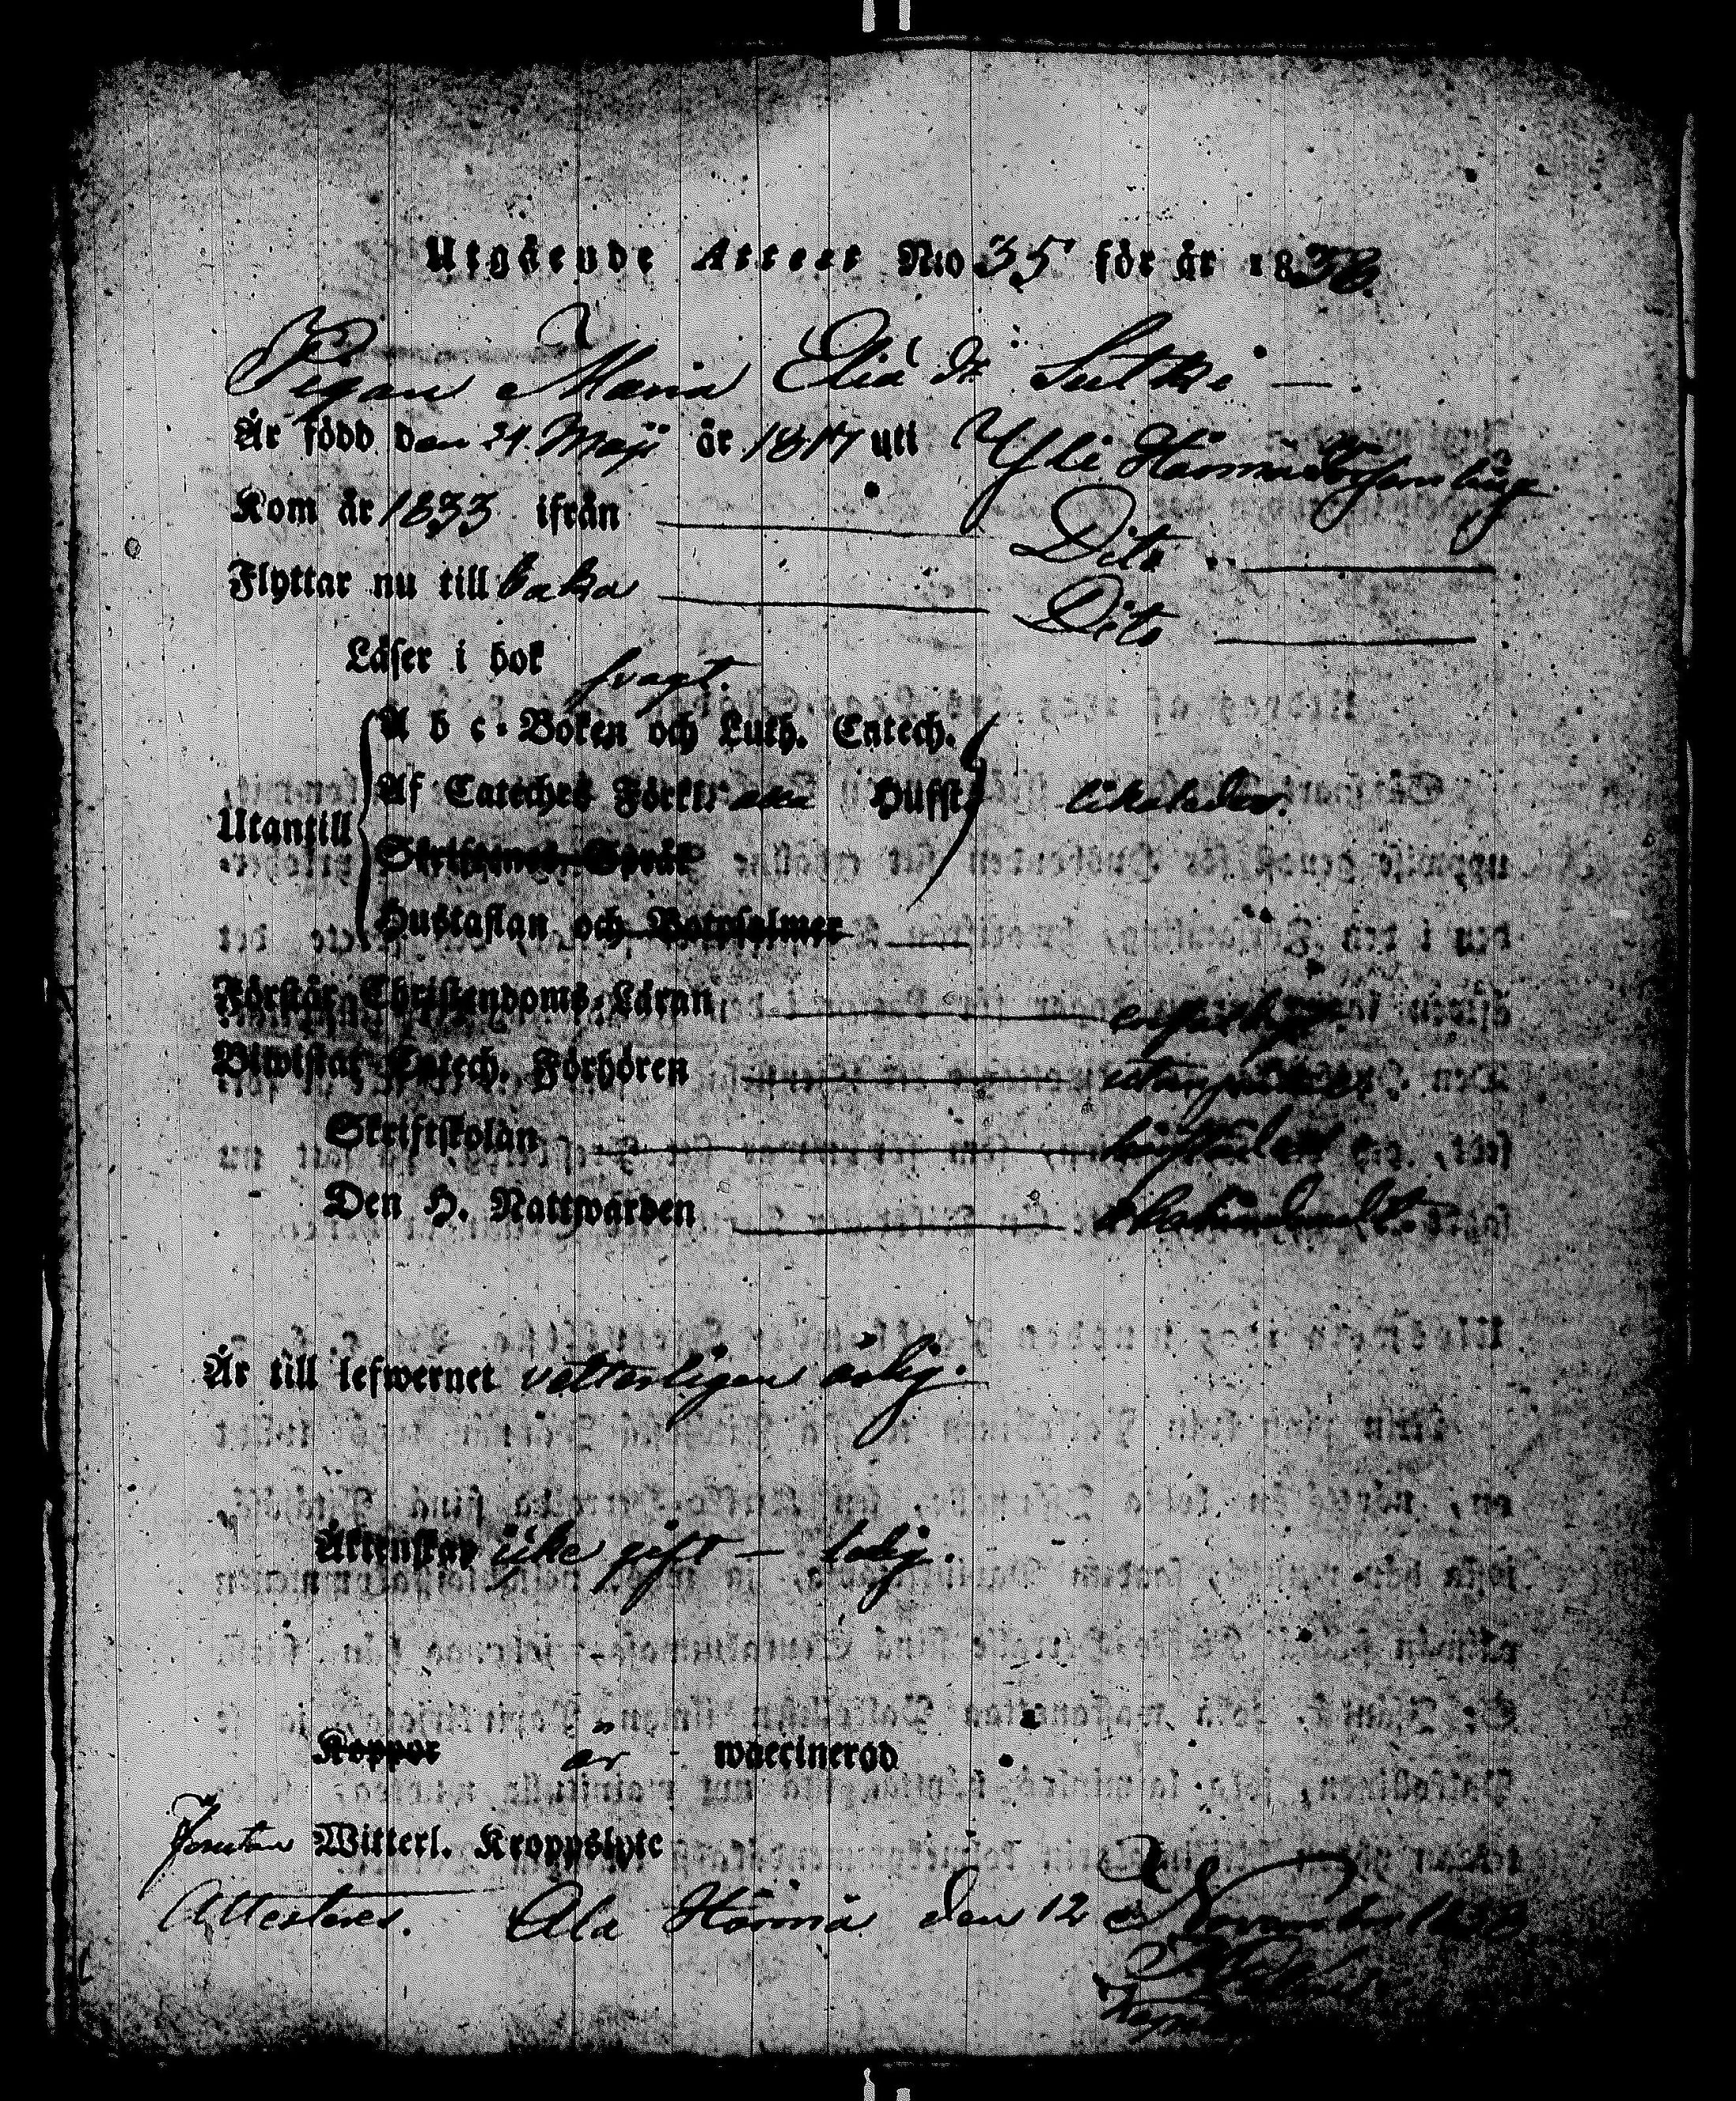 Utgående Attest N:o 35 för år 1838.
Pigan Maria Eliæ dr Sutki —.
Är född den 24. Maji år 1817 uti Yli Härmä
Kom år 1833 ifrån — Dito —
Flyttar nu till baka — Dito —
Läser i bok svagt.
A b c-Boken och Luth. Catech.
Af Cateches Förkl: Hussst likaledes.
Utantill
Skriftenes Språk
Hustaflan och Botpsalmer —
Förstår Christendoms-Läran — enfaldigt
Biwistat Catech. Förhören —
Skriftskolan —
Den H. Nattwarden —
Är till lefwernet vetterligen ärlig.
Äktenskap icke gift — ledig.
Koppor är waccinerad
Förutan Witterl. Kroppslyte
Attesteres. Ala Härmä den 12 November